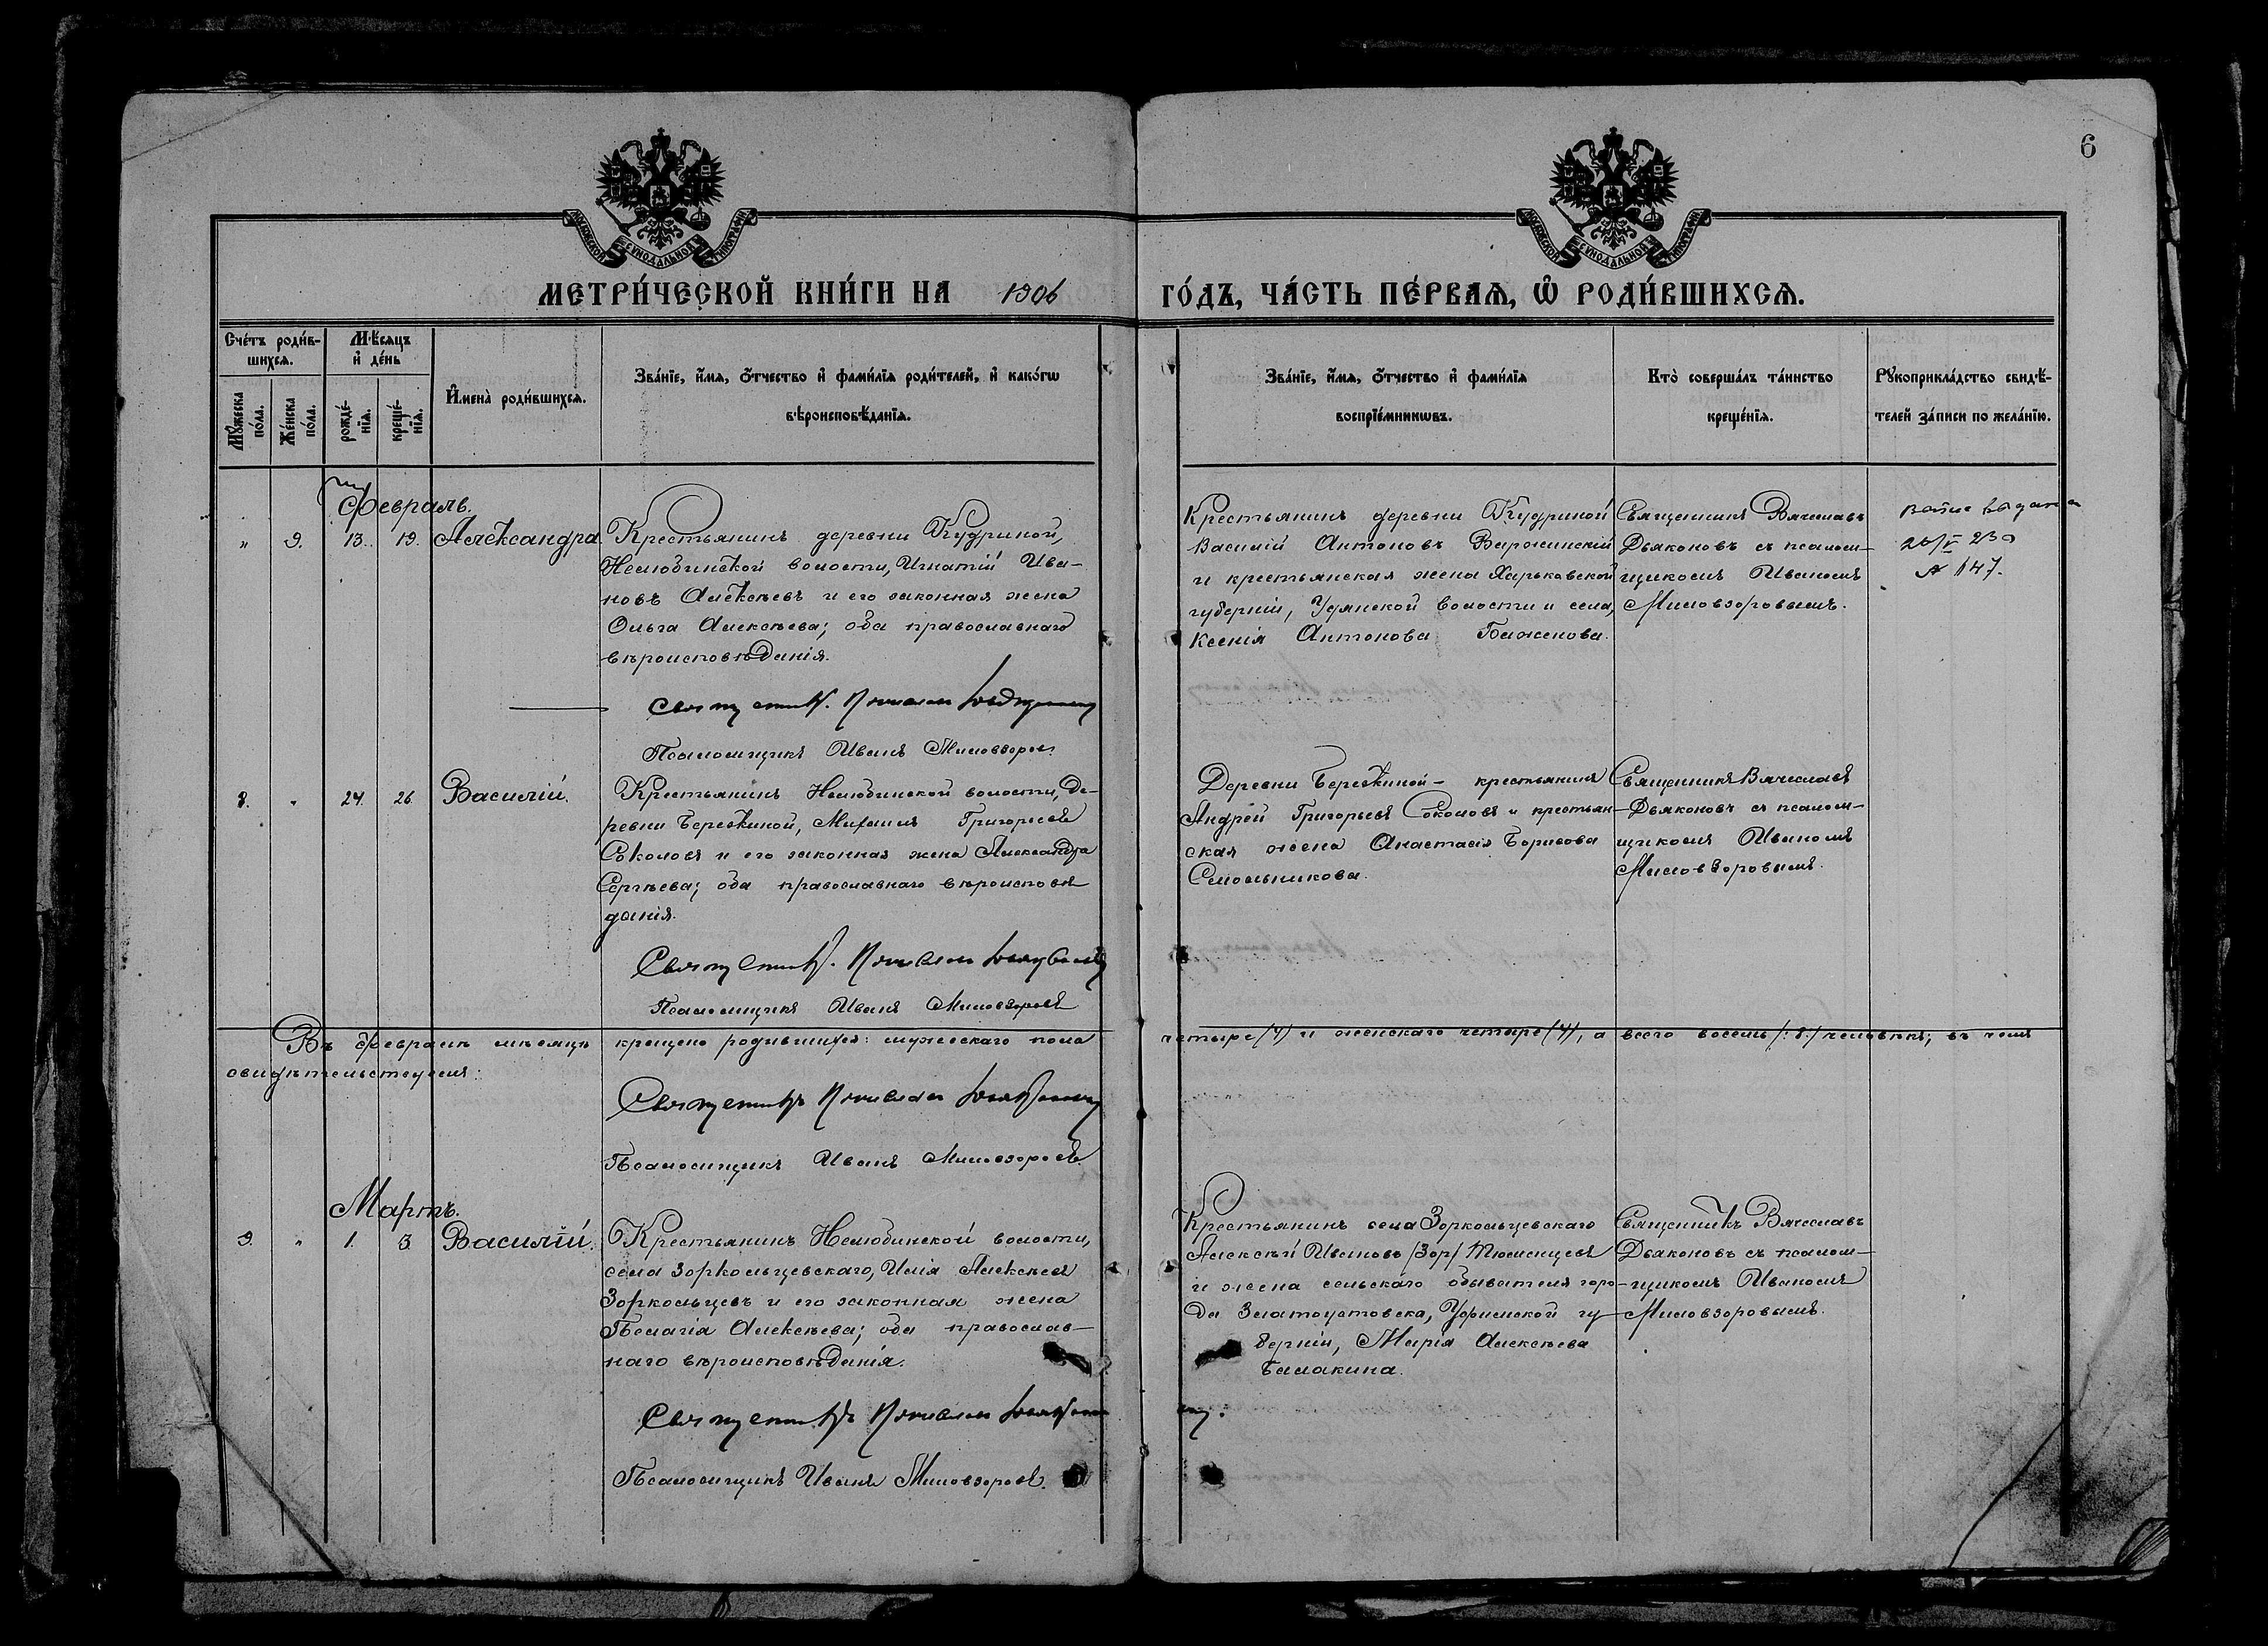 6
МОСКОВСКОЙ СѴНОДАЛЬНОЙ ТИПОГРАФІИ
МОСКОВСКОЙ СѴНОДАЛЬНОЙ ТИПОГРАФІИ
МЕТРИ́ЧЕСКОЙ КНИ́ГИ НА 1906 ГО́ДЪ, ЧА́СТЬ ПЕ́РВАѦ, Ѽ РОДИ́ВШИХСѦ.
Сче́тъ роди́в-
шихсѧ.
Мѣ́сяцъ
и҆ де́нь
Мꙋ́жеска
по́ла.
Же́нска
по́ла.
рожде́-
нїѧ.
креще́-
нїѧ.
И҆мена̀ роди́вшихсѧ.
Зва́нїе, и҆́мѧ, о҆́тчество и҆ фами́лїѧ роди́телей, и҆ како́гѡ
вѣроисповѣ́данїѧ.
Зва́нїе, и҆́мѧ, о҆́тчество и҆ фами́лїѧ
воспрїе́мникѡвъ.
Кто̀ соверша́лъ та́инство
креще́нїѧ.
Рꙋкоприкла́дство свидѣ́-
телей за́писи по жела́нїю.
Февраль.
" 9. 13. 19. Александра
Крестьянинъ деревни Кудриной,
Нелюбинской волости, Игнатій Ива-
новъ Алексѣевъ и его законная жена
Ольга Алексѣева; оба православнаго
вѣроисповѣданія.
Священникъ Вячеславъ Дьяконовъ
Псаломщикъ Иванъ Миловзоровъ.
Крестьянинъ деревни Кудриной
Василій Антоновъ
и крестьянская жена Харьковской
губерніи, волости и села,
Ксенія Антонова Баженова.
Священникъ Вячеславъ
Дьяконовъ съ псалом-
щикомъ Иваномъ
Миловзоровымъ.
выдана
№ 147.
8. " 24. 26. Василій.
Крестьянинъ Нелюбинской волости, де-
ревни Березкиной, Михаилъ Григорьевъ
Соколовъ и его законная жена Александра
Сергѣева; оба православнаго вѣроисповѣ
данія.
Священникъ Вячеславъ Дьяконовъ
Псаломщикъ Иванъ Миловзоровъ
Деревни Березкиной - крестьянинъ
Андрей Григорьевъ Соколовъ и крестьян-
ская жена Анастасія Борисова
Смольникова.
Священникъ Вячеславъ
Дьяконовъ съ псалом-
щикомъ Иваномъ
Миловзоровымъ.
Въ февралѣ мѣсяцѣ крещено родившихся: мужескаго пола четыре /4/ и женскаго четыре /4/, а всего восемь /:8:/ человѣкъ; въ чемъ
свидѣтельствуемъ:
Священникъ Вячеславъ Дьяконовъ
Псаломщикъ Иванъ Миловзоровъ.
Мартъ.
9. " 1. 3. Василій.
Крестьянинъ Нелюбинской волости,
села Зоркольцевскаго, Илія Алексѣевъ
Зоркольцевъ и его законная жена
Пелагія Алексѣева; оба православ-
наго вѣроисповѣданія.
Священникъ Вячеславъ Дьяконовъ.
Псаломщикъ Иванъ Миловзоровъ.
Крестьянинъ села Зоркольцевскаго
Алексѣй Ивановъ /Зор/ Тюменцевъ
и жена сельскаго обывателя горо-
да Златоустовска, Уфимской гу
берніи, Марія Алексѣева
Балакина.
Священникъ Вячеславъ
Дьяконовъ съ псалом-
щикомъ Иваномъ
Миловзоровымъ.